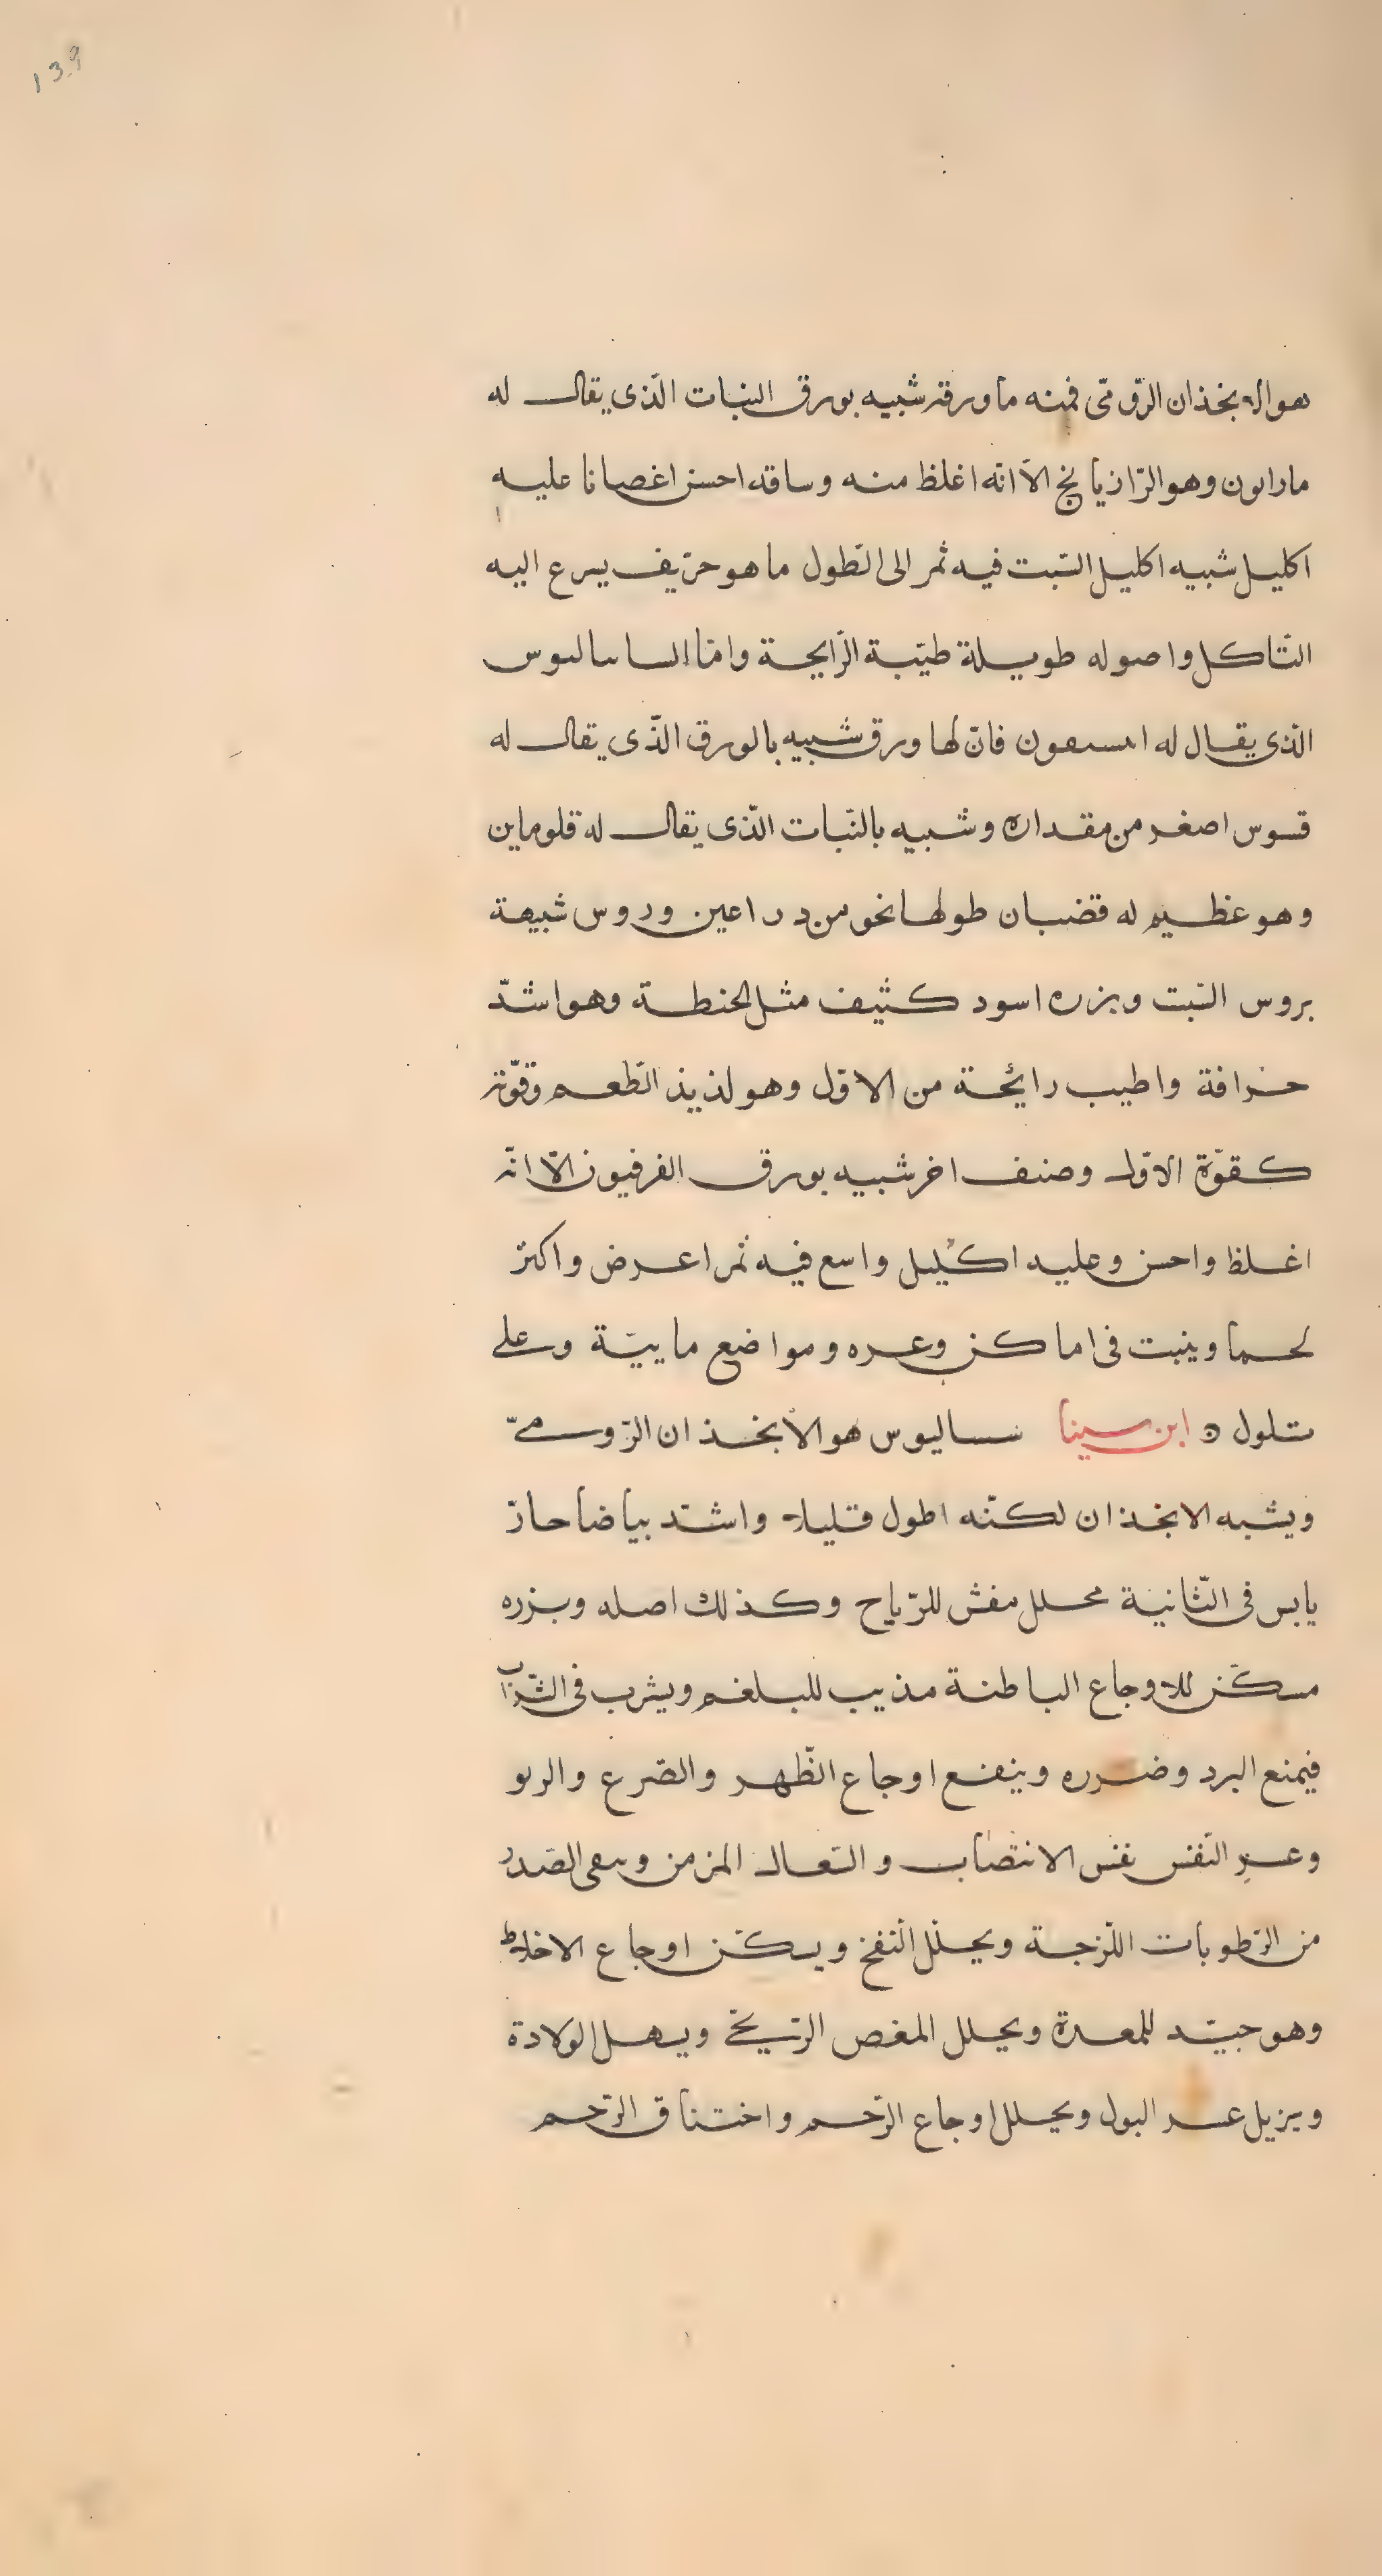 139
هو الانجذان الرّومّى فمنه ما ورقه شبيه بورق النبات الّذى يقال له
مارابون وهو الرّازيانج الّا انّه اغلظ منه وساقه احسن اغصانا عليه
اكليل شبيه اكليل الشبت فيه ثمر الى الطّول ما هو حرّيف يسرع اليه
التّاكل واصوله طويلة طيّبة الرّايحة وامّا الساساليوس
الّذى يقال له فانّ لها ورق شبيه بالورق الّذى يقال له
قسوس اصغر من مقداره وشبيه بالنّبات الّذى يقال له قلوماين
وهو عظيم له قضبان طولها نحو من دراعين وروس شبيهة
بروس الشبت وبزره اسود كثيف مثل الحنطة وهو اشدّ
حرافة واطيب رائحة من الاوّل وهو لذيذ الطّعم وقوّته
كقوّة الاوّل وصنف اخر شبيه بورق الفرفيون الّا انّه
اغلظ واحسن وعليه اكليل واسع فيه ثمر اعرض واكثر
لحما وينبت فى اماكن وعره ومواضع ماييّة وعلى
تلول ه ابن سينا سساليوس هو الانجذان الرّومىّ
ويشبه الانجذان لكنّه اطول قليلا واشدّ بياضا حارّ
يابس فى الثّانية محلل مفشّ للرّياح وكذلك اصله وبزره
مسكّن للاوجاع الباطنة مذيب للبلغم ويشرب فى الشّراب
فيمنع البرد وضرره وينفع اوجاع الظّهر والصّرع والربو
وعسر النّفس نفس الانتصاب والسّعال المزمن وينقى الصّدر
من الرّطوبات اللّزجة ويحلّل النّفخ ويسكّن اوجاع الاخلاط
وهو جيّد للمعدة ويحلل المغص الرّيحىّ ويسهل الولادة
ويزيل عسر البول ويحلل اوجاع الرّحم واختناق الرّحم